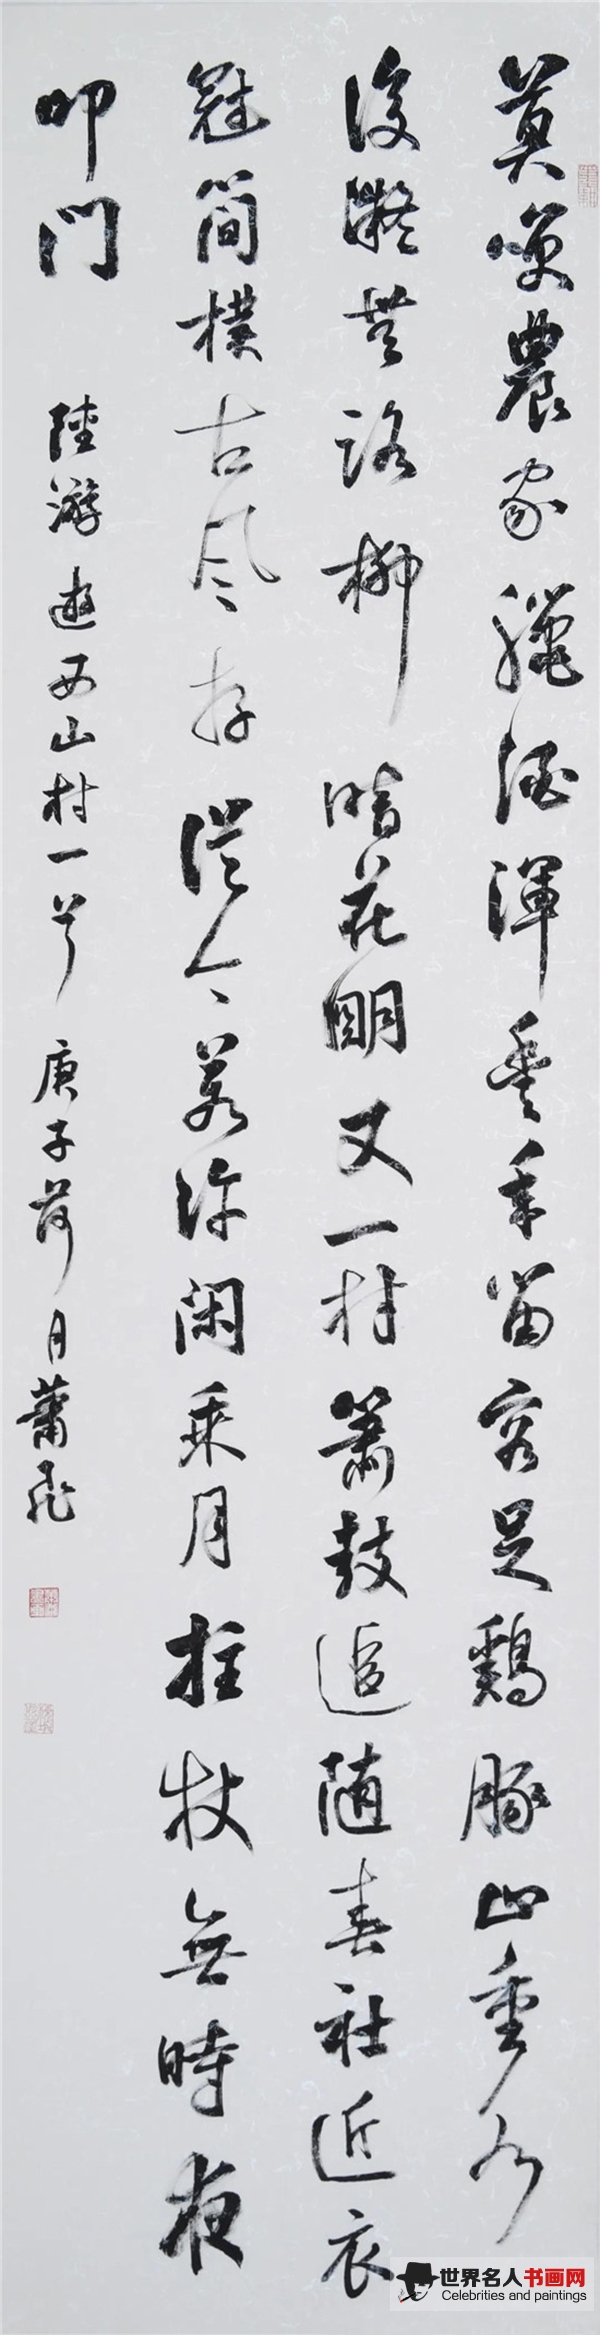 莫笑農家臘酒渾豐年留客足鷄豚山重水
復疑無路柳暗花明又一村簫鼓追随春社近衣
冠簡樸古風存從今若許閑乘月拄杖無時夜
叩門
陸游遊西山村一首 庚子荷月蕭飛
世界名人书画网
Celebrities and paintings